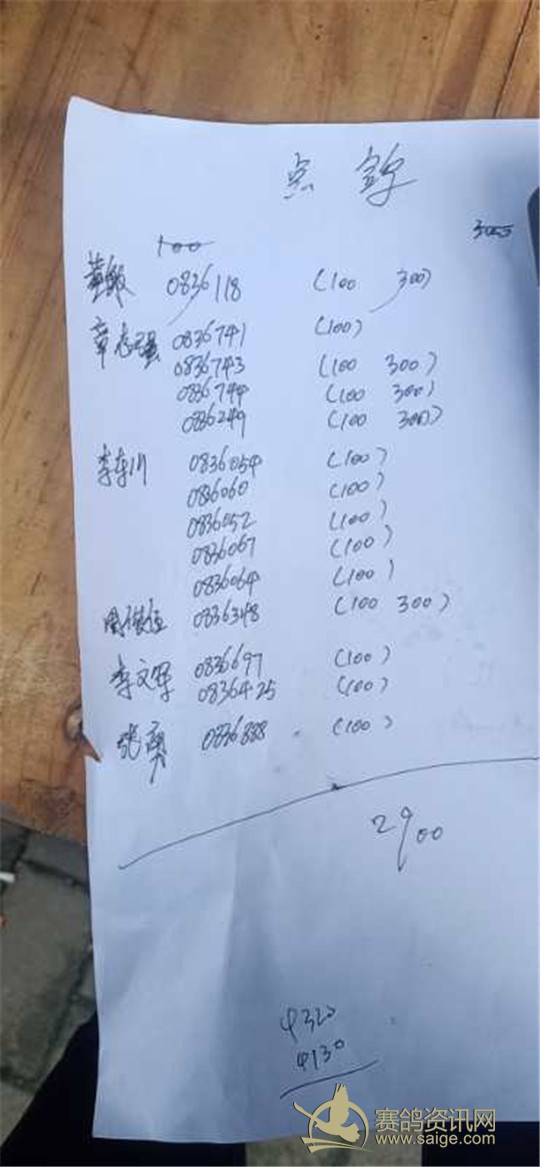 100
0836118 (100 300)
0836741 (100)
0836743 (100 300)
0836744 (100 300)
0836249 (100 300)
李东川 0836054 (100)
0836060 (100)
0836052 (100)
0836067 (100)
0836064 (100)
0836348 (100 300)
李文军 0836697 (100)
0836425 (100)
张勇 0836888 (100)
2900
4320
4130
赛鸽资讯网
www.saige.com